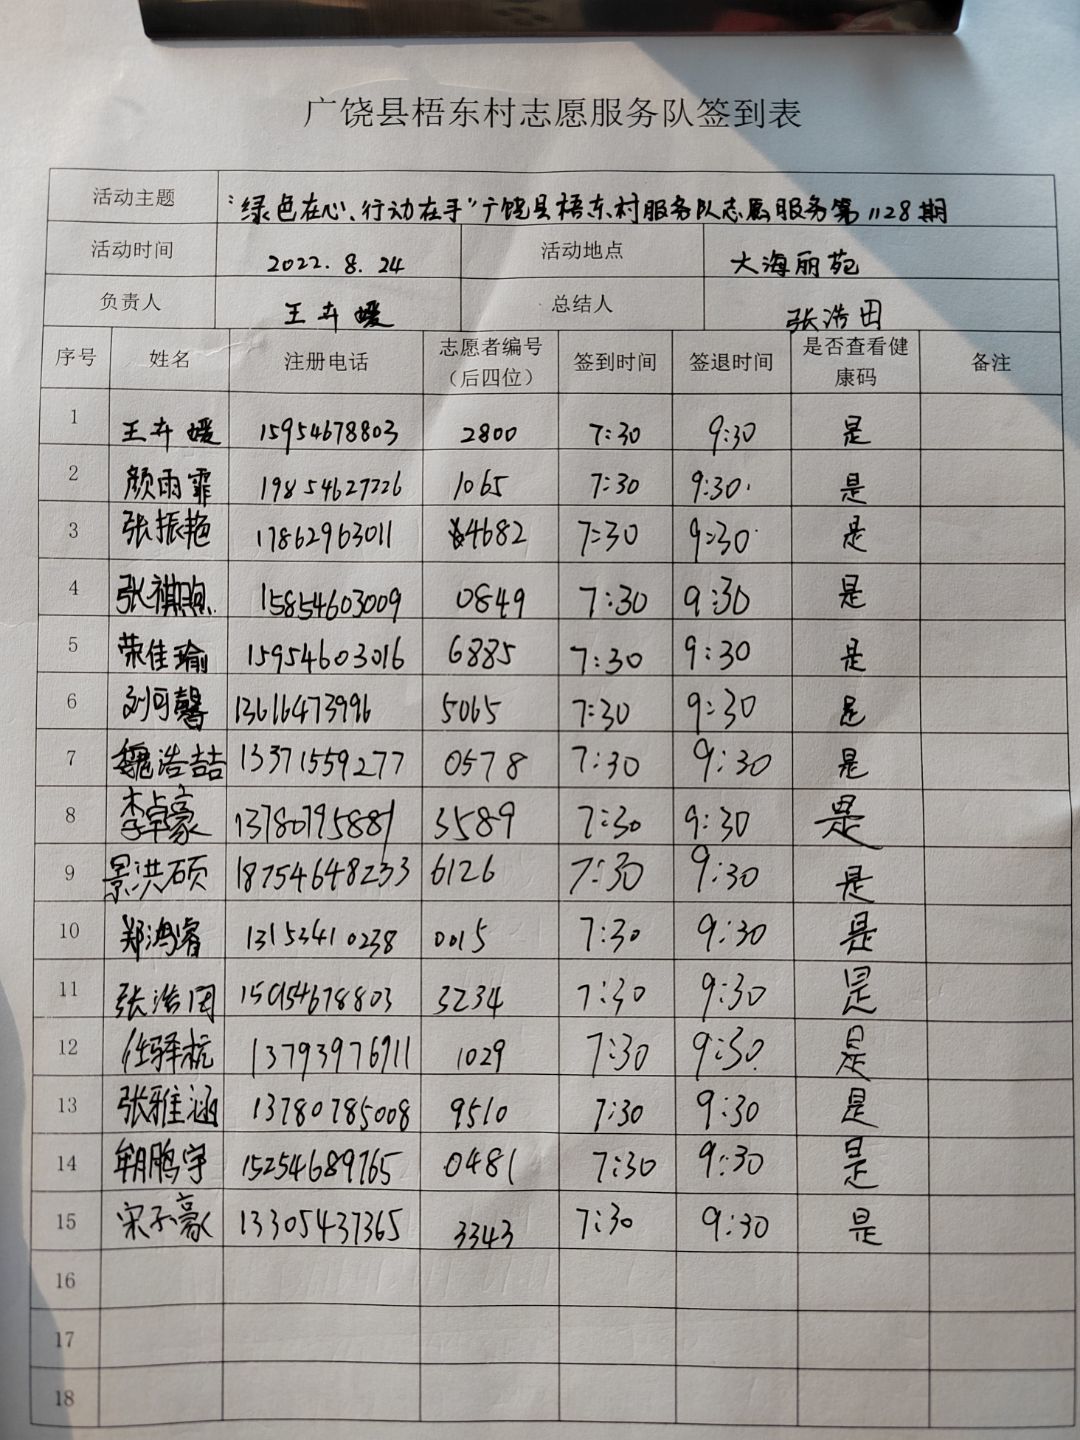 广饶县梧东村志愿服务队签到表
活动主题 “绿色在心、行动在手”广饶县梧东村服务队志愿服务第1128期
活动时间 2022.8.24 活动地点 大海丽苑
负责人 王卉媛 总结人 张浩田
序号 姓名 注册电话 志愿者编号（后四位） 签到时间 签退时间 是否查看健康码 备注
1 王卉媛 15954678803 2800 7:30 9:30 是
2 颜雨霏 19854627226 1065 7:30 9:30 是
3 张振艳 17862963011 4682 7:30 9:30 是
4 张祺煦 15854603009 0849 7:30 9:30 是
5 荣佳瑜 15954603016 6885 7:30 9:30 是
6 刘可馨 13616473996 5065 7:30 9:30 是
7 魏浩喆 13371559277 0578 7:30 9:30 是
8 李卓豪 13780795881 3589 7:30 9:30 是
9 景洪硕 18754648233 6126 7:30 9:30 是
10 郑鸿睿 13153410238 0015 7:30 9:30 是
11 张浩田 15954678803 3234 7:30 9:30 是
12 任驿杭 13793976911 1029 7:30 9:30 是
13 张雅涵 13780785008 9510 7:30 9:30 是
14 鹏宇 15254689765 0481 7:30 9:30 是
15 宋子豪 13305437365 3343 7:30 9:30 是
16
17
18